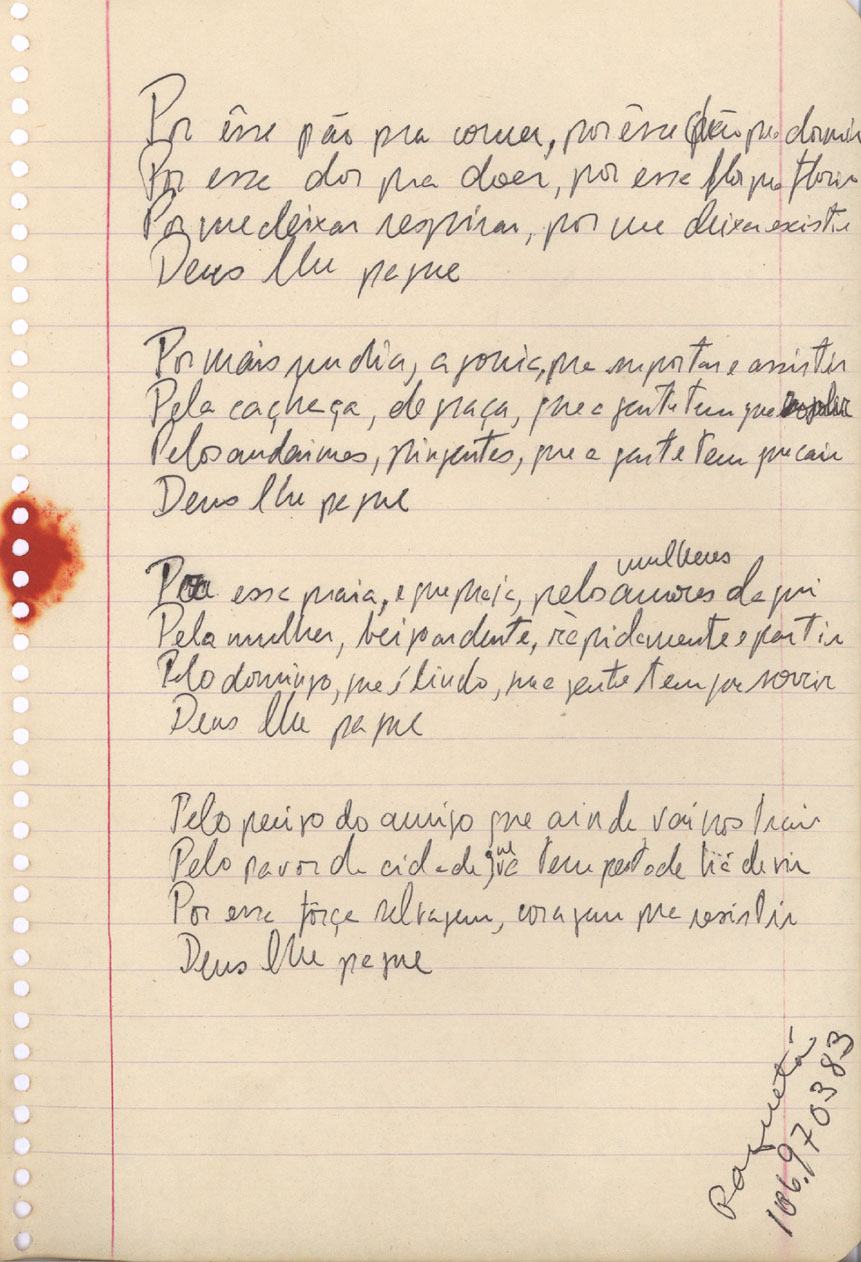 Por êsse pão pra comer, por êsse chão pra dormir
Por essa dor pra doer, por essa flor pra florir
Por me deixar respirar, por me deixar existir
Deus lhe pague
Por mais um dia, agonia, pra suportar e assistir
Pela cachaça, de graça, que a gente tem que engolir
Pelos andaimes, pingentes, que a gente tem que cair
Deus lhe pague
Por essa praia, e que praia, pelos amores daqui
mulheres
Pela mulher, bei ardente, rapidamente e partir
Pelo domingo, que é lindo, que a gente tem que sorrir
Deus lhe pague
Pelo perigo do amigo que ainda vai nos trair
Pelo pavor da cidade que a tempestade há de vir
Por essa fôrça selvagem, coragem pra resistir
Deus lhe pague
Paquetá
106.970383